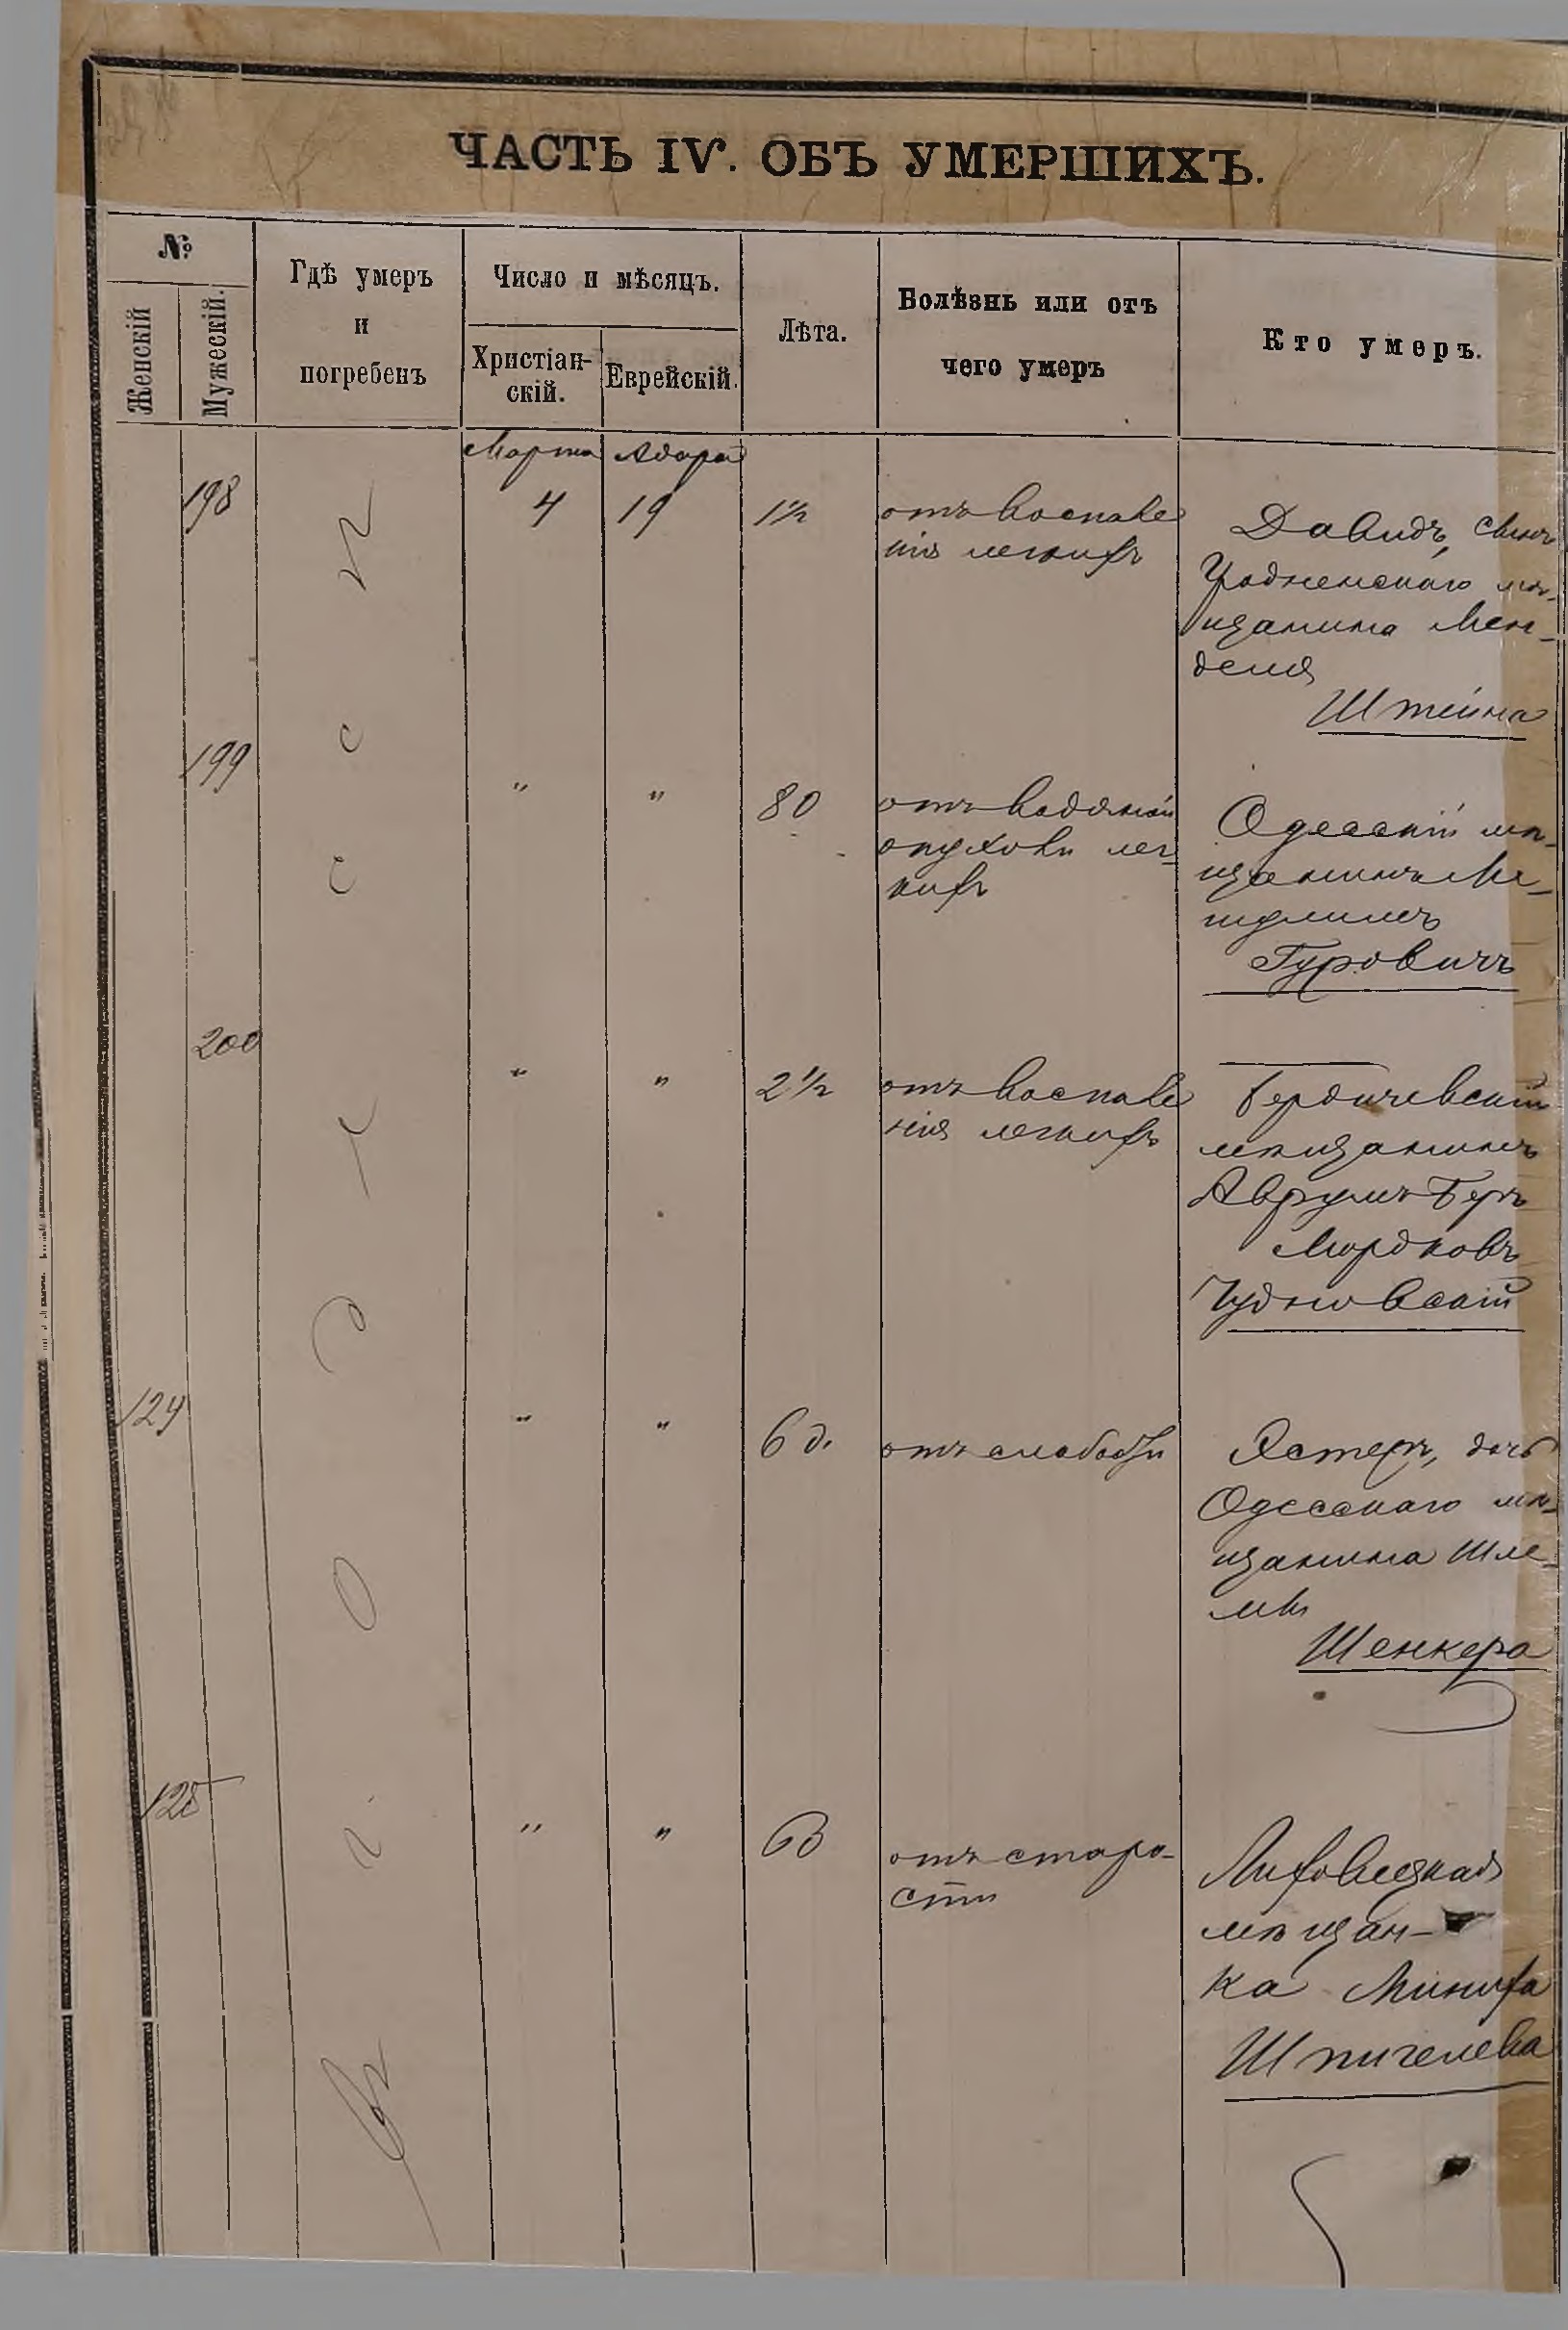 ЧАСТЬ IV. ОБЪ УМЕРШИХЪ.
№
Женскій
Мужескій.
Гдѣ умеръ
и
погребенъ
Число и мѣсяцъ.
Христіан-
скій.
Еврейскій.
Лѣта.
Болѣзнь или отъ
чего умеръ
Кто умеръ.
Марта Адара
въ г. Одессѣ
198 4 19 1½
отъ воспале
нія легкихъ
Давидъ, сынъ
Гродненскаго мѣ-
щанина Мен-
деля
Штейна
199 " " 80
отъ водяной
опухоли лег
кихъ
Одесскій мѣ-
щанинъ Ме-
шулимъ
Гуровичъ
200 " " 2½
отъ воспале
нія легкихъ
Бердичевскій
мѣщанинъ
Аврумъ Беръ
Мордковъ
Чудновскій
124 " " 6 д.
отъ слабости
Эстеръ, дочь
Одесскаго мѣ-
щанина Шле-
мы
Шенкера
125 " "
отъ старо-
сти
Липовецкая
мѣщан-
ка Миниха
Шпигелева